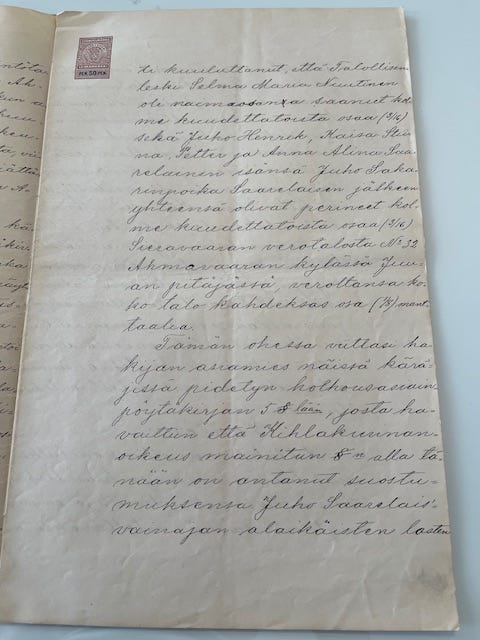 PEN. 50 PEN.
ti kuuluttanut, että Talollisen
leski Selma Maria Nuutinen
oli naimaosanaan saanut kol-
me kuudettatoista osaa (3/16)
sekä Juho Henrik, Kaisa Stii-
na, Petter ja Anna Alina Saa-
relainen isänsä Juho Saka-
rinpoika Saarelaisen jälkeen
yhteensä olivat perineet kol-
me kuudettatoista osaa (3/16)
Sieravaaran verotalosta No 32
Ahmavaaran kylässä Juu-
an pitäjässä, verottansa ko-
ko talo kahdeksas osa (1/8) mant-
taalea.
Tämän ohessa viittasi ha-
kijan asiamies näissä kärä-
jissä pidetyn holhousasiain
pöytäkirjan 5 § lään, josta ha-
vaittiin että Kihlakunnan-
oikeus mainitun §:n alla tä-
nään on antanut suostu-
muksensa Juho Saarelais-
vainajan alaikäisten lasten